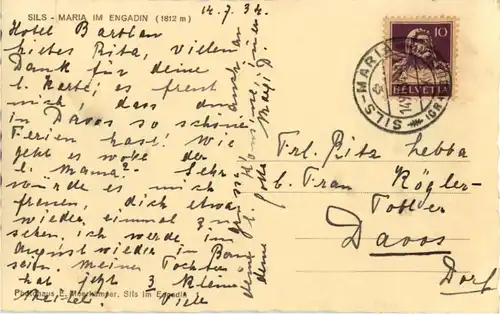 14.7.34.
SILS - MARIA IM ENGADIN (1812 m)
Hotel Barblan
liebes Rita, vielen
Dank für deine
l. Karte; es freut
mich, dass du
in Davos so schöne
Ferien hast! Wie
geht es wohl der
l. Mama? Sehr
würde es mich
freuen, dich etwa
wieder einmal zu
sehen. ich werde im
August wieder in Bern
sein. meine Tochter
hat jetzt 3 kleine
Viele
Photohaus E. Meerkämper, Sils im Engadin
deine
10
HELVETIA
SILS-MARIA
(GR
Frl. Rita
b. Frau Kögler-
Davos
Dorf